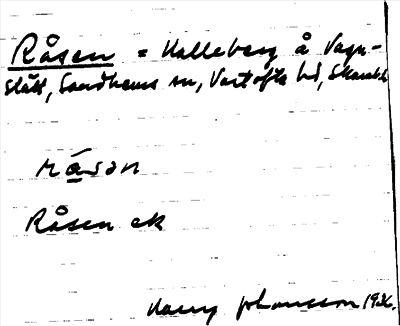 Råsen = Halleberg å Vagn-
slätt, Sandhems sn, Vartofta hd, Skarab.
råsan
Råsen ek
Harry Johansson 1926.